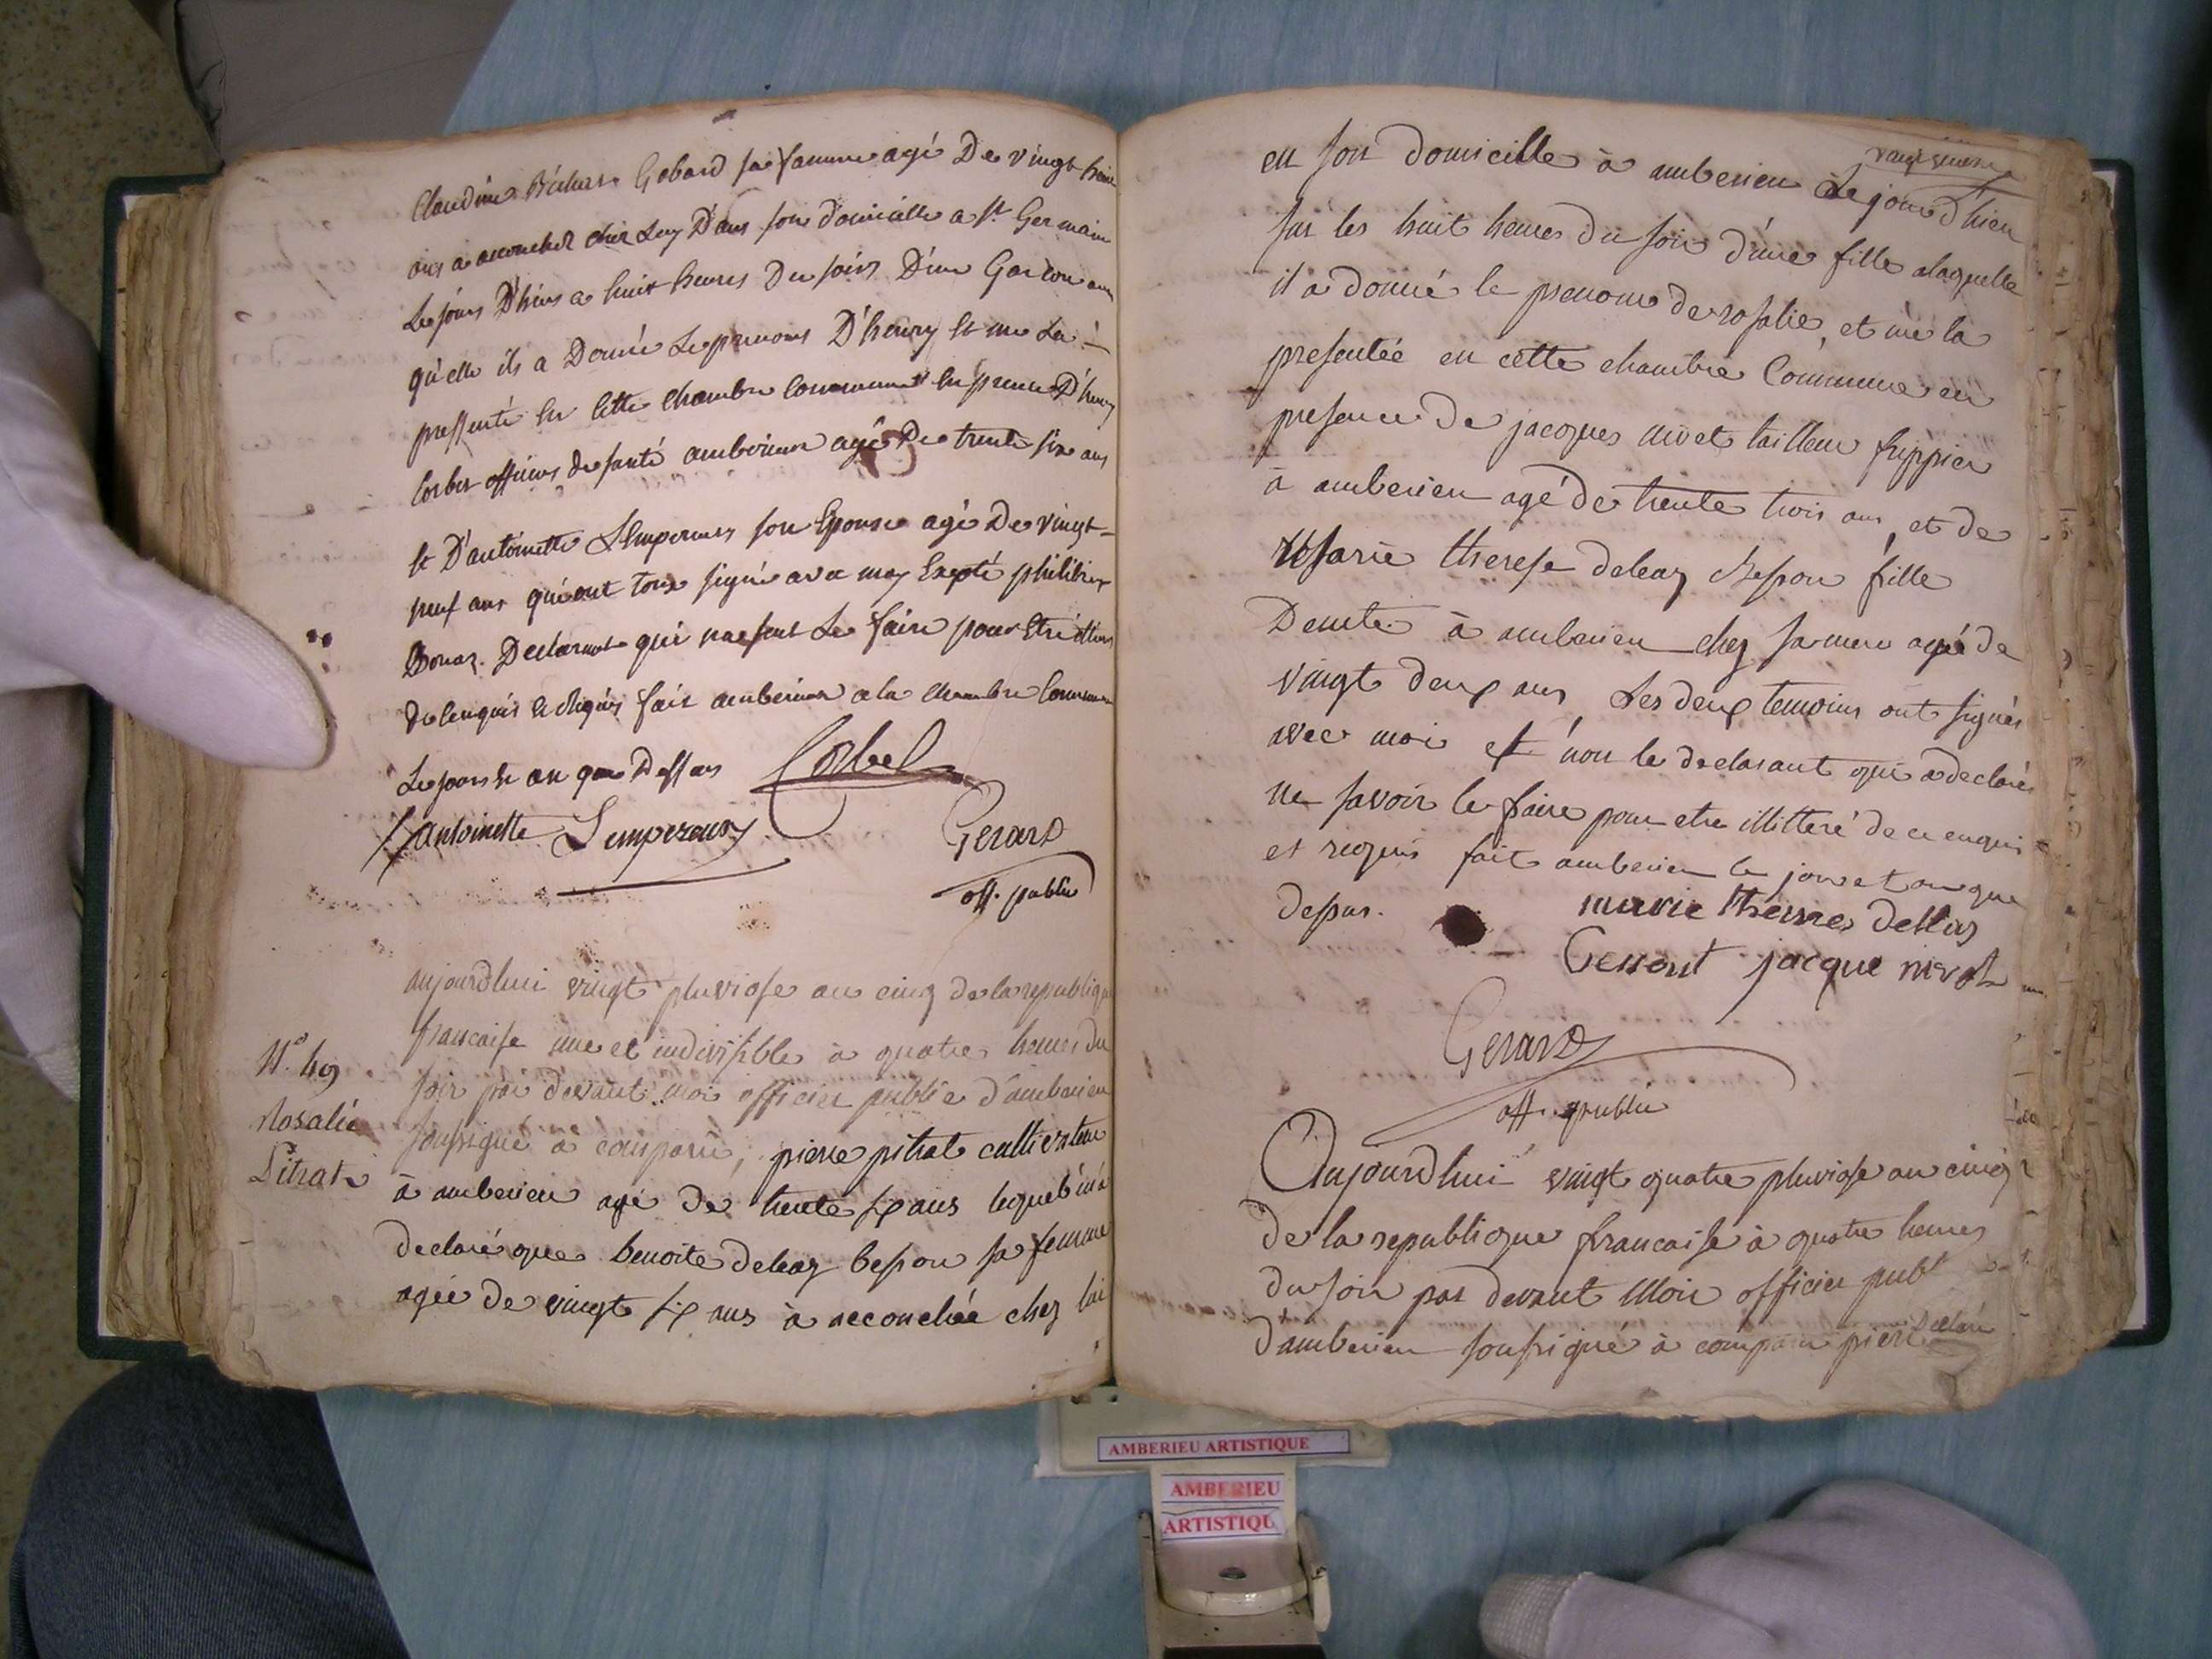 Claudine Gobard sa famme agé De vingt huit
ans a accouchez chez Luy Dans son domicille a st Germain
Le jour D'hiers a huit heures Du soirs D'un Garcon au
qu'elle ils a Donné Le prenoms D'henry Et me La
pressenté En Cette Chambre Commune En presence D'henry
Corbet officiers de santé amberieux agé De trente six ans
Et D'antoinette Lempereur son Epouse agé De vingt-
neuf ans qui ont tous signé avec moy Excepté philibert
Bonaz. Declarant qui ne sait Le faire pour Etre
De Enquis Et Requis fait amberieux a la Chambre Commune
Le jour Et an que Dessus Corbel
antoinette Lempereur Gerard
off. public
aujourdhui vingt pluviose an cinq de la republique
francaise une et indivisible à quatre heures du
soir par devant moi officier public d'amberieu
soussigné à comparu, pierre pitrat cultivateur
à amberieu agé de trente six ans lequel m'a
declaré que benoite deleaz besson sa femme
agée de vingt six ans à accouchée chez lui
N.° 49
Rosalie
Pitrat
en son domicille à amberieu Le jour d'hier
sur les huit heures du soir d'une fille alaquelle
il a donné le prenom de rosalie, et me la
presentée en cette chambre Commune en
presence de jacques nivet tailleur frippier
à amberieu agé de trente trois ans, et de
Marie therese deleaz Besson fille
Demte à amberieu chez sa mere agée de
vingt deux ans Les deux temoins ont signés
avec moi et non le declarant qui a declaré
ne savoir le faire pour etre illitteré de ce enquis
et requis fait amberieu le jour et an que
dessus.
marie therese dellas
Besson jacque nivet
Gerard
off. public
Aujourdhui vingt quatre pluviose an cinq
de la republique francaise à quatre heures
du soir par devant Moi officier publ
d'amberieu soussigné à comparu pierre
AMBERIEU ARTISTIQUE
AMBERIEU
ARTISTIQU